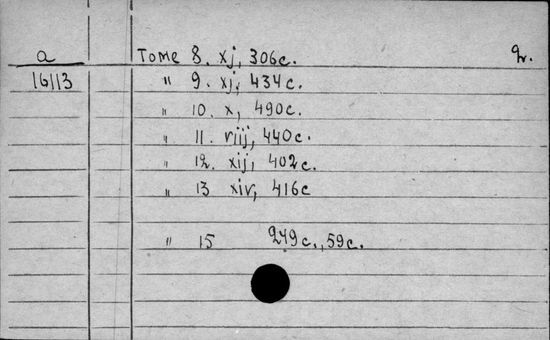 a Tome 8. xj, 306c. 2.
16113 " 9. xj, 434c.
" 10. x, 490c.
" 11. viij, 440c.
" 12. xij, 402c.
" 13 xiv, 416c
" 15 249c., 59c.